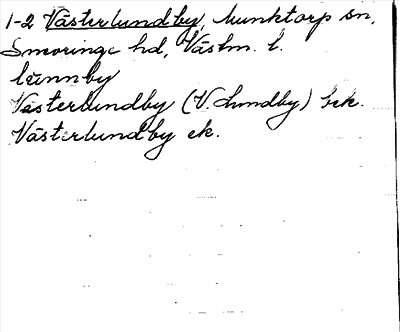 1-2 Västerlundby, Munktorp sn,
Snevringe hd, Västm. l.
lünnby
Västerlundby (V. Lundby) bek.
Västerlundby ek.